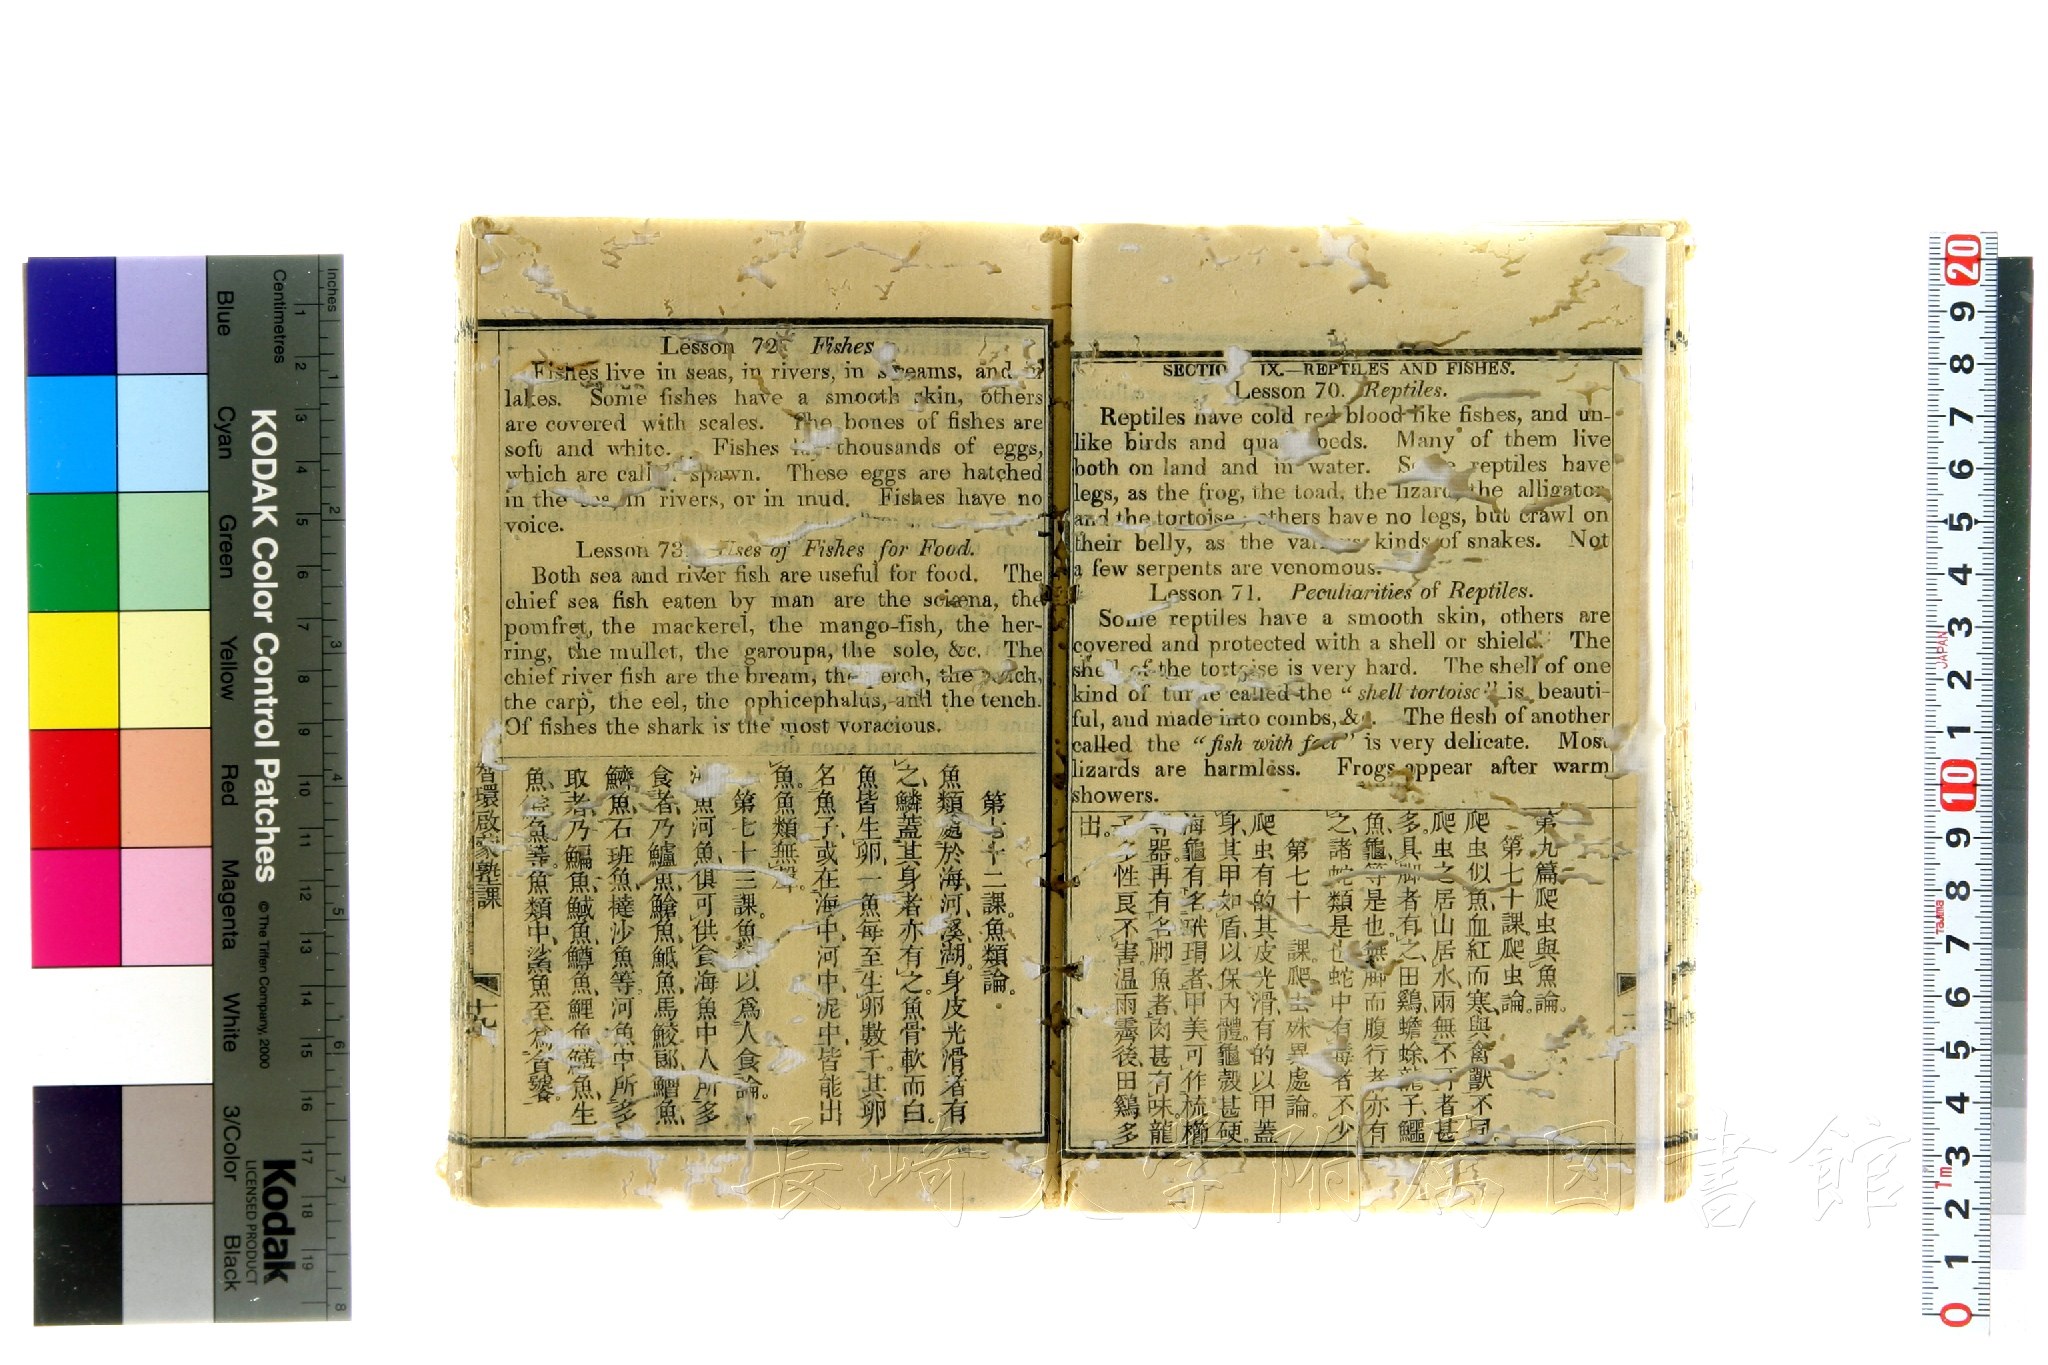 SECTION IX.—REPTILES AND FISHES.
Lesson 70. Reptiles.
Reptiles have cold red blood like fishes, and un-
like birds and Many of them live
both on land and in water. Some reptiles have
legs, as the frog, the toad, the lizard, the alligator
and the tortoise; others have no legs, but crawl on
their belly, as the various kinds of snakes. Not
a few serpents are venomous.
Lesson 71. Peculiarities of Reptiles.
Some reptiles have a smooth skin, others are
covered and protected with a shell or shield. The
shell of the tortoise is very hard. The shell of one
kind of turtle called the "shell tortoise" is beauti-
ful, and made into combs, &c. The flesh of another
called the "fish with feet" is very delicate. Most
lizards are harmless. Frogs appear after warm
showers.
第九篇爬虫與魚論。
第七十課。爬虫論。
爬虫似魚、血紅而寒、與禽獸不同。
爬虫之居山居水、兩無不可者甚
多。具脚者有之、田鷄、蟾蜍、龍子、鱷
魚、龜等是也。無脚而腹行者、亦有
之、諸蛇類是也。蛇中有毒者不少。
第七十一課。爬虫殊異處論。
爬虫有的其皮光滑、有的以甲蓋
身、其甲如盾以保內體。龜殼甚硬。
海龜有名玳瑁者、甲美可作梳櫛
等器。再有名脚魚者、肉甚有味。龍
子多性良不害。温雨霽後、田鷄多
出。
Lesson 72. Fishes
Fishes live in seas, in rivers, in streams, and in
lakes. Some fishes have a smooth skin, others
are covered with scales. The bones of fishes are
soft and white. Fishes lay thousands of eggs,
which are called spawn. These eggs are hatched
in the sea, in rivers, or in mud. Fishes have no
voice.
Lesson 73. Uses of Fishes for Food.
Both sea and river fish are useful for food. The
chief sea fish eaten by man are the sciæna, the
pomfret, the mackerel, the mango-fish, the her-
ring, the mullet, the garoupa, the sole, &c. The
chief river fish are the bream, the perch, the
the carp, the eel, the ophicephalus, and the tench.
Of fishes the shark is the most voracious.
第七十二課。魚類論。
魚類處於海、河、溪、湖。身皮光滑者有
之、鱗蓋其身者亦有之。魚骨軟而白。
魚皆生卵、一魚每至生卵數千。其卵
名魚子、或在海中、河中、泥中、皆能出
魚。魚類無聲。
第七十三課。魚以爲人食論。
海魚河魚、俱可供食。海魚中人所多
食者、乃鱸魚、鯧魚、魚、馬鮫、魚、
魚、石班魚、撻沙魚等。河魚中所多
取者、乃鯿魚、魚、鱒魚、鯉魚、鱔魚、生
魚、魚等。魚類中、鯊魚至爲貪饕。
智環啟蒙塾課
十九
長崎大学附属図書館
Inches
Centimetres
KODAK Color Control Patches
© The Tiffen Company, 2000
Kodak
LICENSED PRODUCT
Blue Cyan Green Yellow Red Magenta White 3/Color Black
1 2 3 4 5 6 7 8 9 10 11 12 13 14 15 16 17 18 19
1 2 3 4 5 6 7 8
20 9 8 7 6 5 4 3 2 1 10 9 8 7 6 5 4 3 2 1 0
JAPAN
Tajima
1m